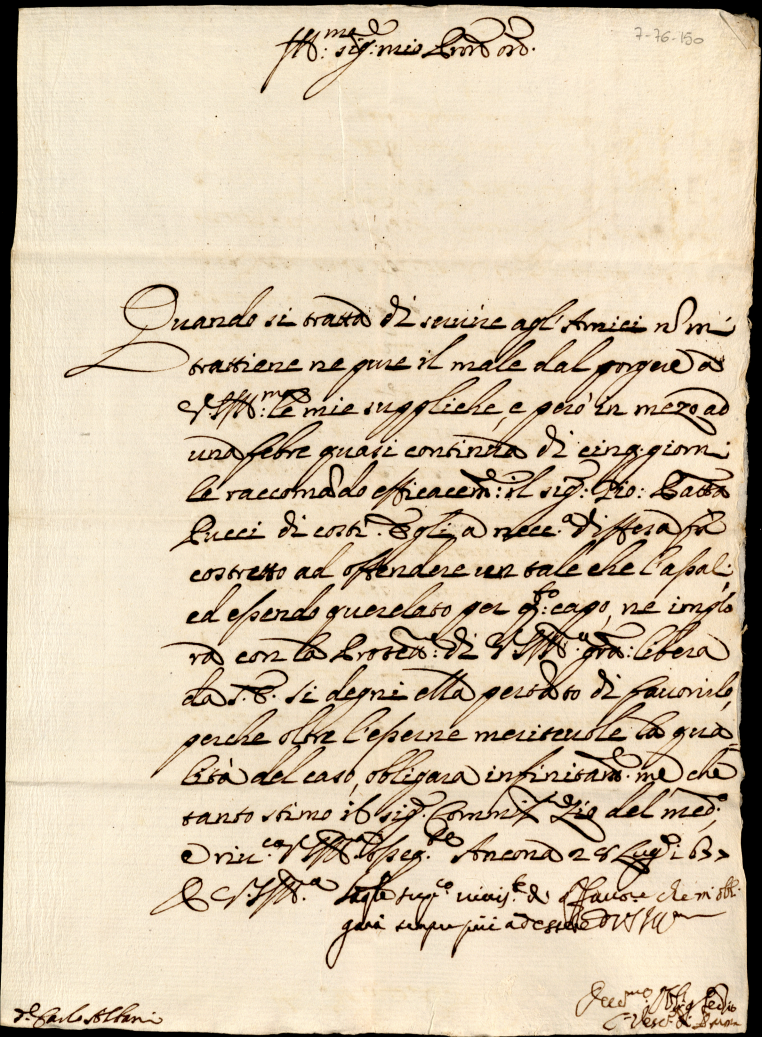 7-76-150
Ill:mo sig:r mio Pron ord.
Quando si tratta di seruire agl'Amici nõ mi
trattiene ne pure il male dal porgere a
V.S.Ill:ma le mie suppliche, e però in mezo ad
una febre quasi continua di cinq. giorni
le raccomãdo efficacem:te il sig:r Gio: Batta
Pucci di costì. Egli a nece.a difesa fù
costretto ad offendere un tale che l'assalì,
ed essendo querelato per q:sto capo, ne implo
ra con la Protett:ne di V.S.Ill:ma gra: libera
da S.E. si degni ella pertãto di fauorirlo,
perche oltre l'esserne meriteuole la qua
lità del caso, obligarà infinitam.te me che
tanto stimo il sig.r Commiss. Zio del med:o,
e riu.co V.S.Ill.ma Ancona 28 Lug.o
Di V.S.Ill.ma
fauore che m'obli
garà sempre più ad essere
S.r Carlo Albani